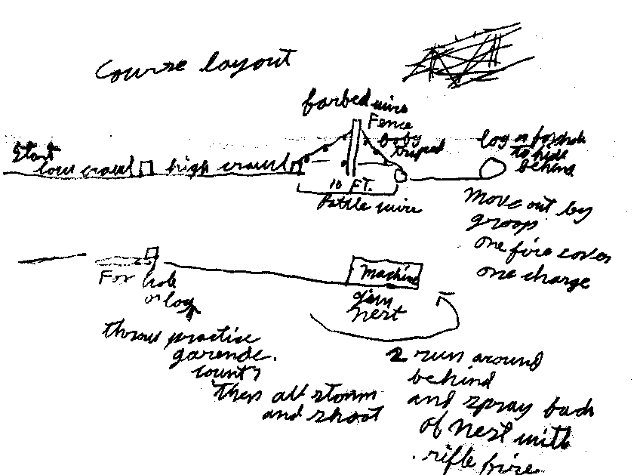 Course layout
barbed wire
Fence
booby
triped
log or foxhole
to hide
behind
Start
low crawl high crawl
10 FT.
Battle wire
Move out by
groop
one fire cover
one charge
For hole
or log
Machine
gun
Nest
throw practice
garende.
count
then all storm
and shoot
2 run around
behind
and spray back
of Nest with
rifle fire